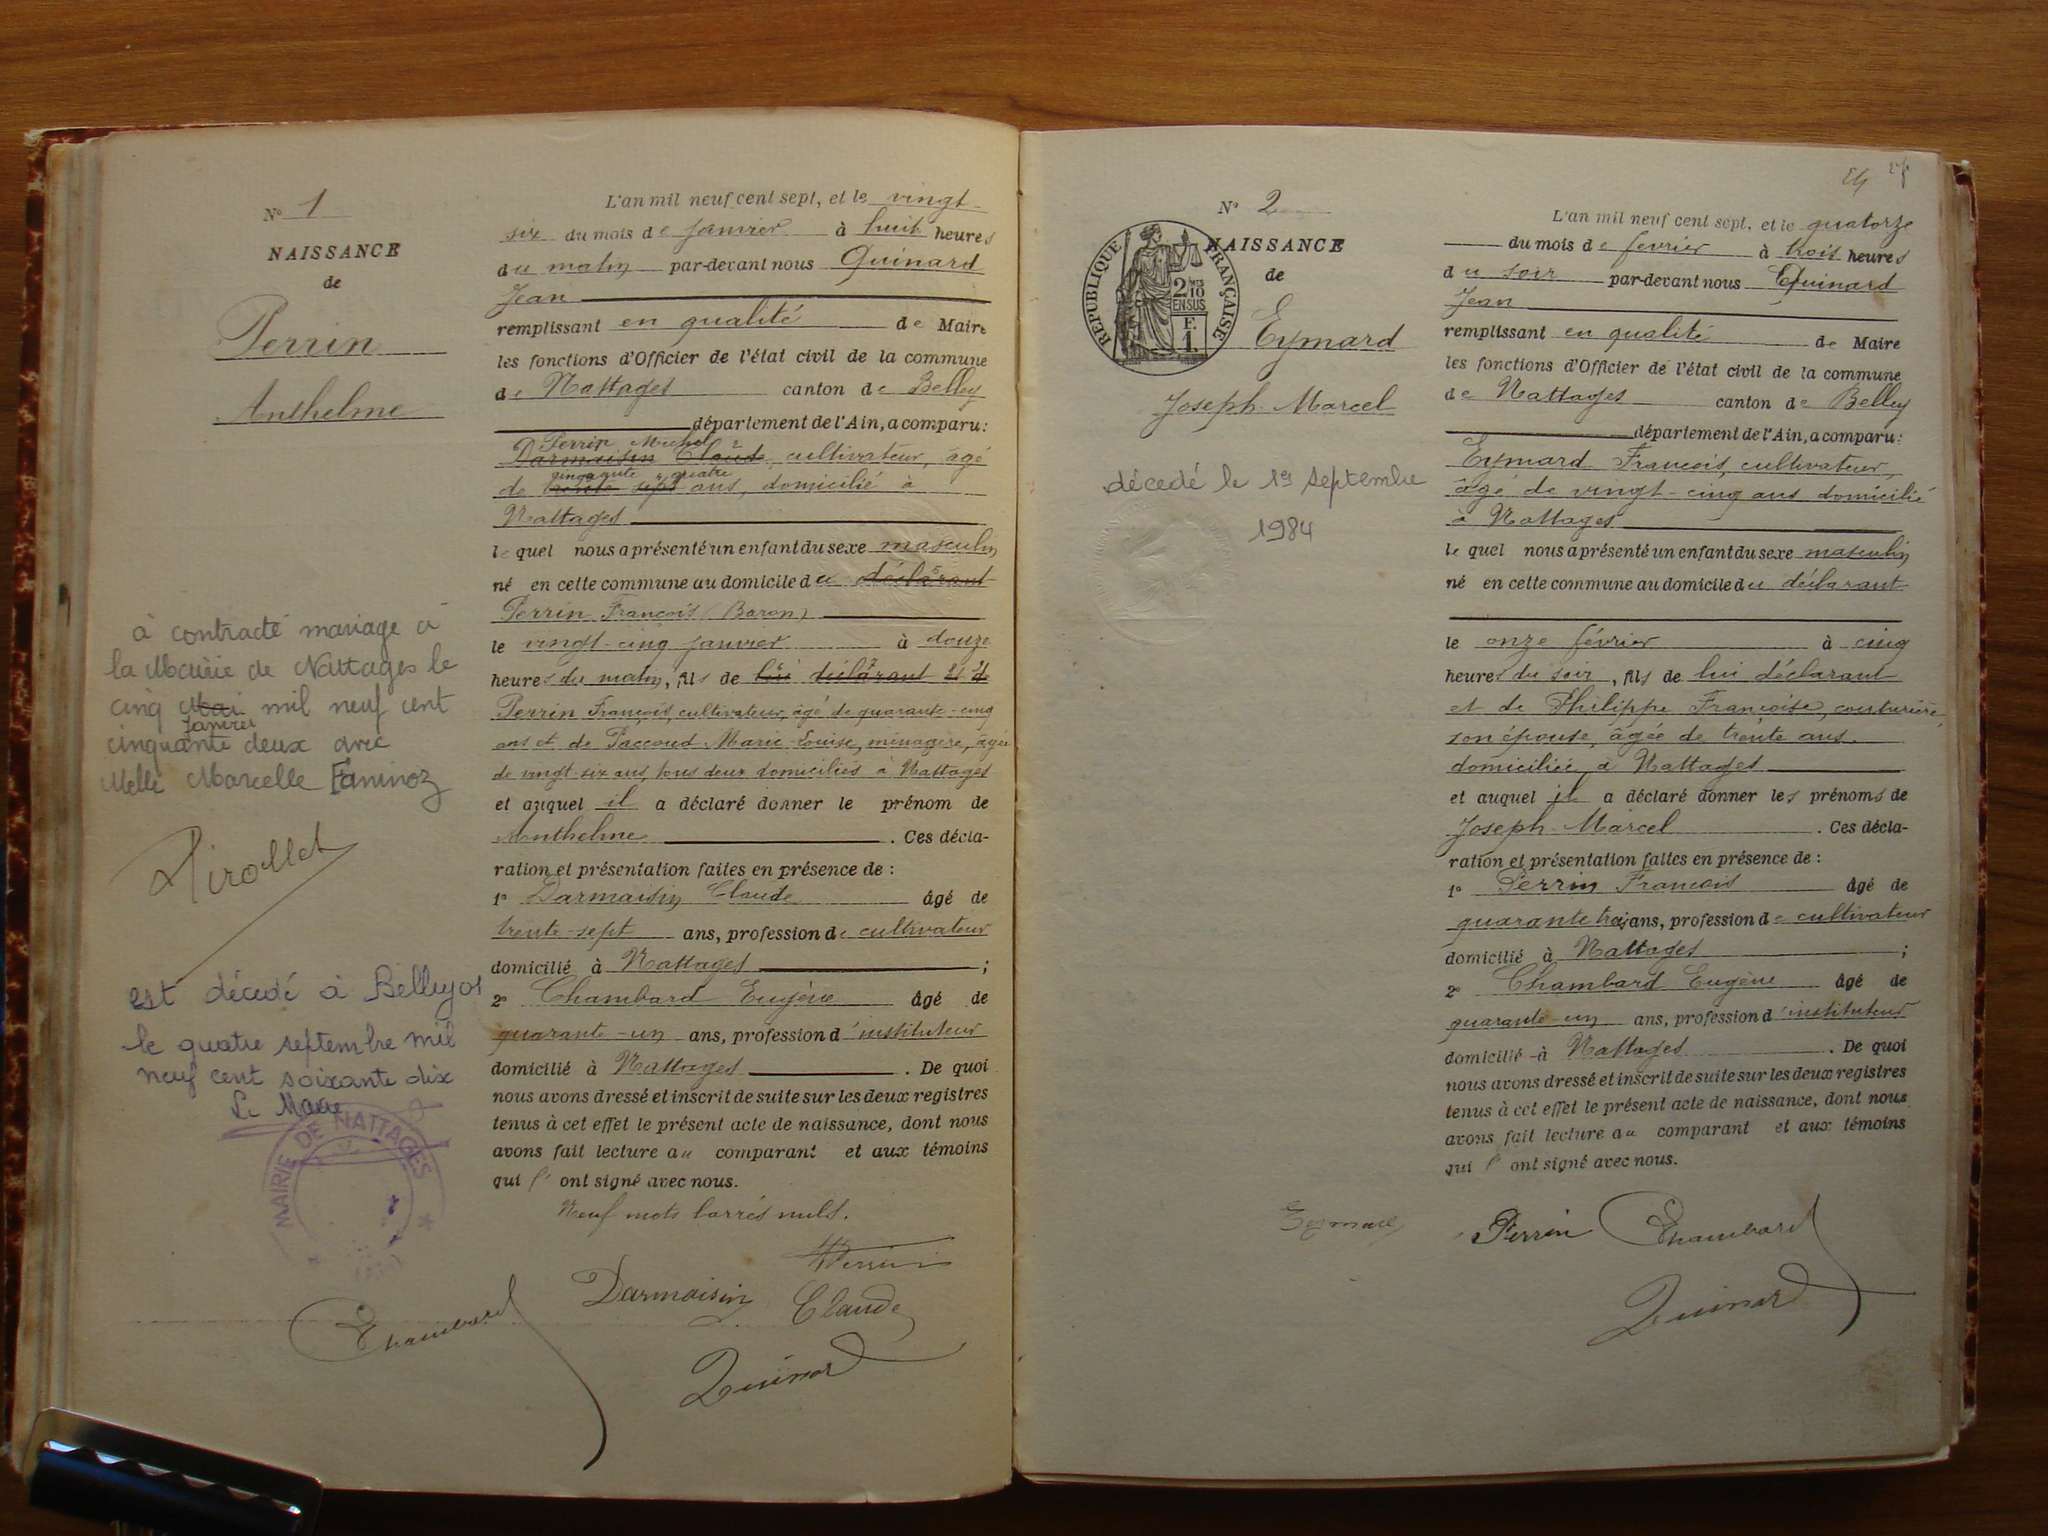 N° 1
NAISSANCE
de
Perrin
Anthelme
à contracté mariage à
la Mairie de Nattages le
cinq Mai mil neuf cent
Janvier
cinquante deux avec
Melle Marcelle Faninoz
est décédé à Belley
le quatre septembre mil
neuf cent soixante dix
Le Maire
MAIRIE DE NATTAGES
L'an mil neuf cent sept, et le vingt
six du mois de janvier à huit heures
du matin par-devant nous Quinard
Jean
remplissant en qualité de Maire
les fonctions d'Officier de l'état civil de la commune
de Nattages canton de Belley
département de l'Ain, a comparu:
Perrin Michel
Darmaisin Claude, cultivateur, âgé
cinquante quatre
de trente sept ans, domicilié à
Nattages
lequel nous a présenté un enfant du sexe masculin
né en cette commune au domicile du déclarant
Perrin François (Baron)
le vingt-cinq janvier à douze
heures du matin, fils de lui déclarant et de
Perrin François, cultivateur, âgé de quarante-cinq
ans et de Paccoud Marie-Louise, ménagère, âgée
de vingt-six ans, tous deux domiciliés à Nattages
et auquel il a déclaré donner le prénom de
Anthelme . Ces décla-
ration et présentation faites en présence de :
1° Darmaisin Claude âgé de
trente-sept ans, profession de cultivateur
domicilié à Nattages ;
2° Chambard Eugène âgé de
quarante-un ans, profession d'instituteur
domicilié à Nattages . De quoi
nous avons dressé et inscrit de suite sur les deux registres
tenus à cet effet le présent acte de naissance, dont nous
avons fait lecture au comparant et aux témoins
qui l' ont signé avec nous.
Neuf mots barrés nuls.
Perrin
Darmaisin Claude
Chambard
Quinard
24
N° 2
NAISSANCE
de
REPUBLIQUE FRANÇAISE
2/10
EN SUS
F.
1.
Eymard
Joseph-Marcel
décédé le 1er septembre
1984
L'an mil neuf cent sept, et le quatorze
du mois de février à trois heures
du soir par-devant nous Quinard
Jean
remplissant en qualité de Maire
les fonctions d'Officier de l'état civil de la commune
de Nattages canton de Belley
département de l'Ain, a comparu:
Eymard François, cultivateur,
âgé de vingt-cinq ans domicilié
à Nattages
lequel nous a présenté un enfant du sexe masculin
né en cette commune au domicile du déclarant
le onze février à cinq
heures du soir, fils de lui déclarant
et de Philippe Françoise, couturière,
son épouse, âgée de trente ans.
domiciliée à Nattages
et auquel il a déclaré donner les prénoms de
Joseph-Marcel . Ces décla-
ration et présentation faites en présence de :
1° Perrin François âgé de
quarante trois ans, profession de cultivateur
domicilié à Nattages ;
2° Chambard Eugène âgé de
quarante-un ans, profession d'instituteur
domicilié à Nattages . De quoi
nous avons dressé et inscrit de suite sur les deux registres
tenus à cet effet le présent acte de naissance, dont nous
avons fait lecture au comparant et aux témoins
qui l' ont signé avec nous.
Eymard Perrin Chambard
Quinard